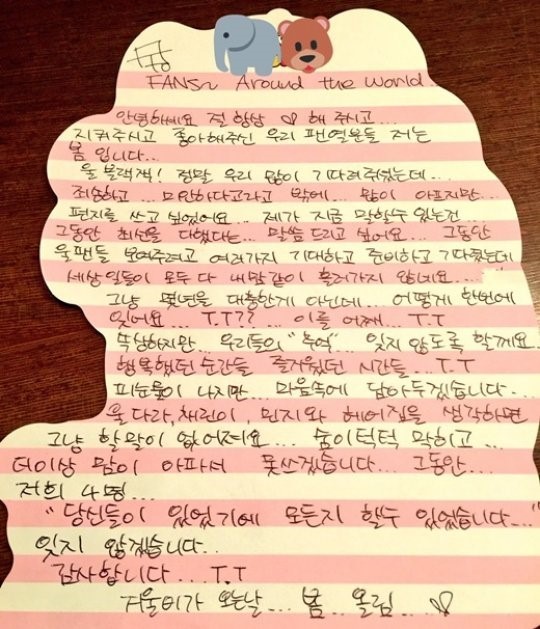 FANS~ Around the world
안녕하세요 절 항상 ♡ 해 주시고...
지켜주시고 좋아해주신 우리 팬 여러분들 저는
봄 입니다...
울 블랙잭! 정말 우리 많이 기다려주셨는데...
죄송하고... 미안하다고라고 밖에... 많이 아프지만...
편지를 쓰고 싶었어요... 제가 지금 말할수 있는건...
그동안 최선을 다했다는... 말씀 드리고 싶어요... 그동안
울팬들 보여주려고 여러가지 기대하고 준비하고 기다렸는데
세상일들이 모두 다 내맘같이 흘러가지 않네요...
그냥 몇년을 대충한게 아닌데... 어떻게 한번에
잊어요... T.T?? ... 이를 어째... T.T
속상하지만... 우리들의 "추억"... 잊지 않도록 할께요..
행복했던 순간들 즐거웠던 시간들... T.T
피눈물이 나지만... 마음속에 담아두겠습니다...
울 다라, 채린이, 민지와 헤어짐을 생각하면
그냥 할말이 없어져요... 숨이턱턱 막히고...
더이상 맘이 아파서 못쓰겠습니다... 그동안...
저희 4명...
"당신들이 있었기에 모든지 할수 있었습니다..."
잊지 않겠습니다..
감사합니다... T.T
겨울비가 오는날... 봄.. 올림... ♡